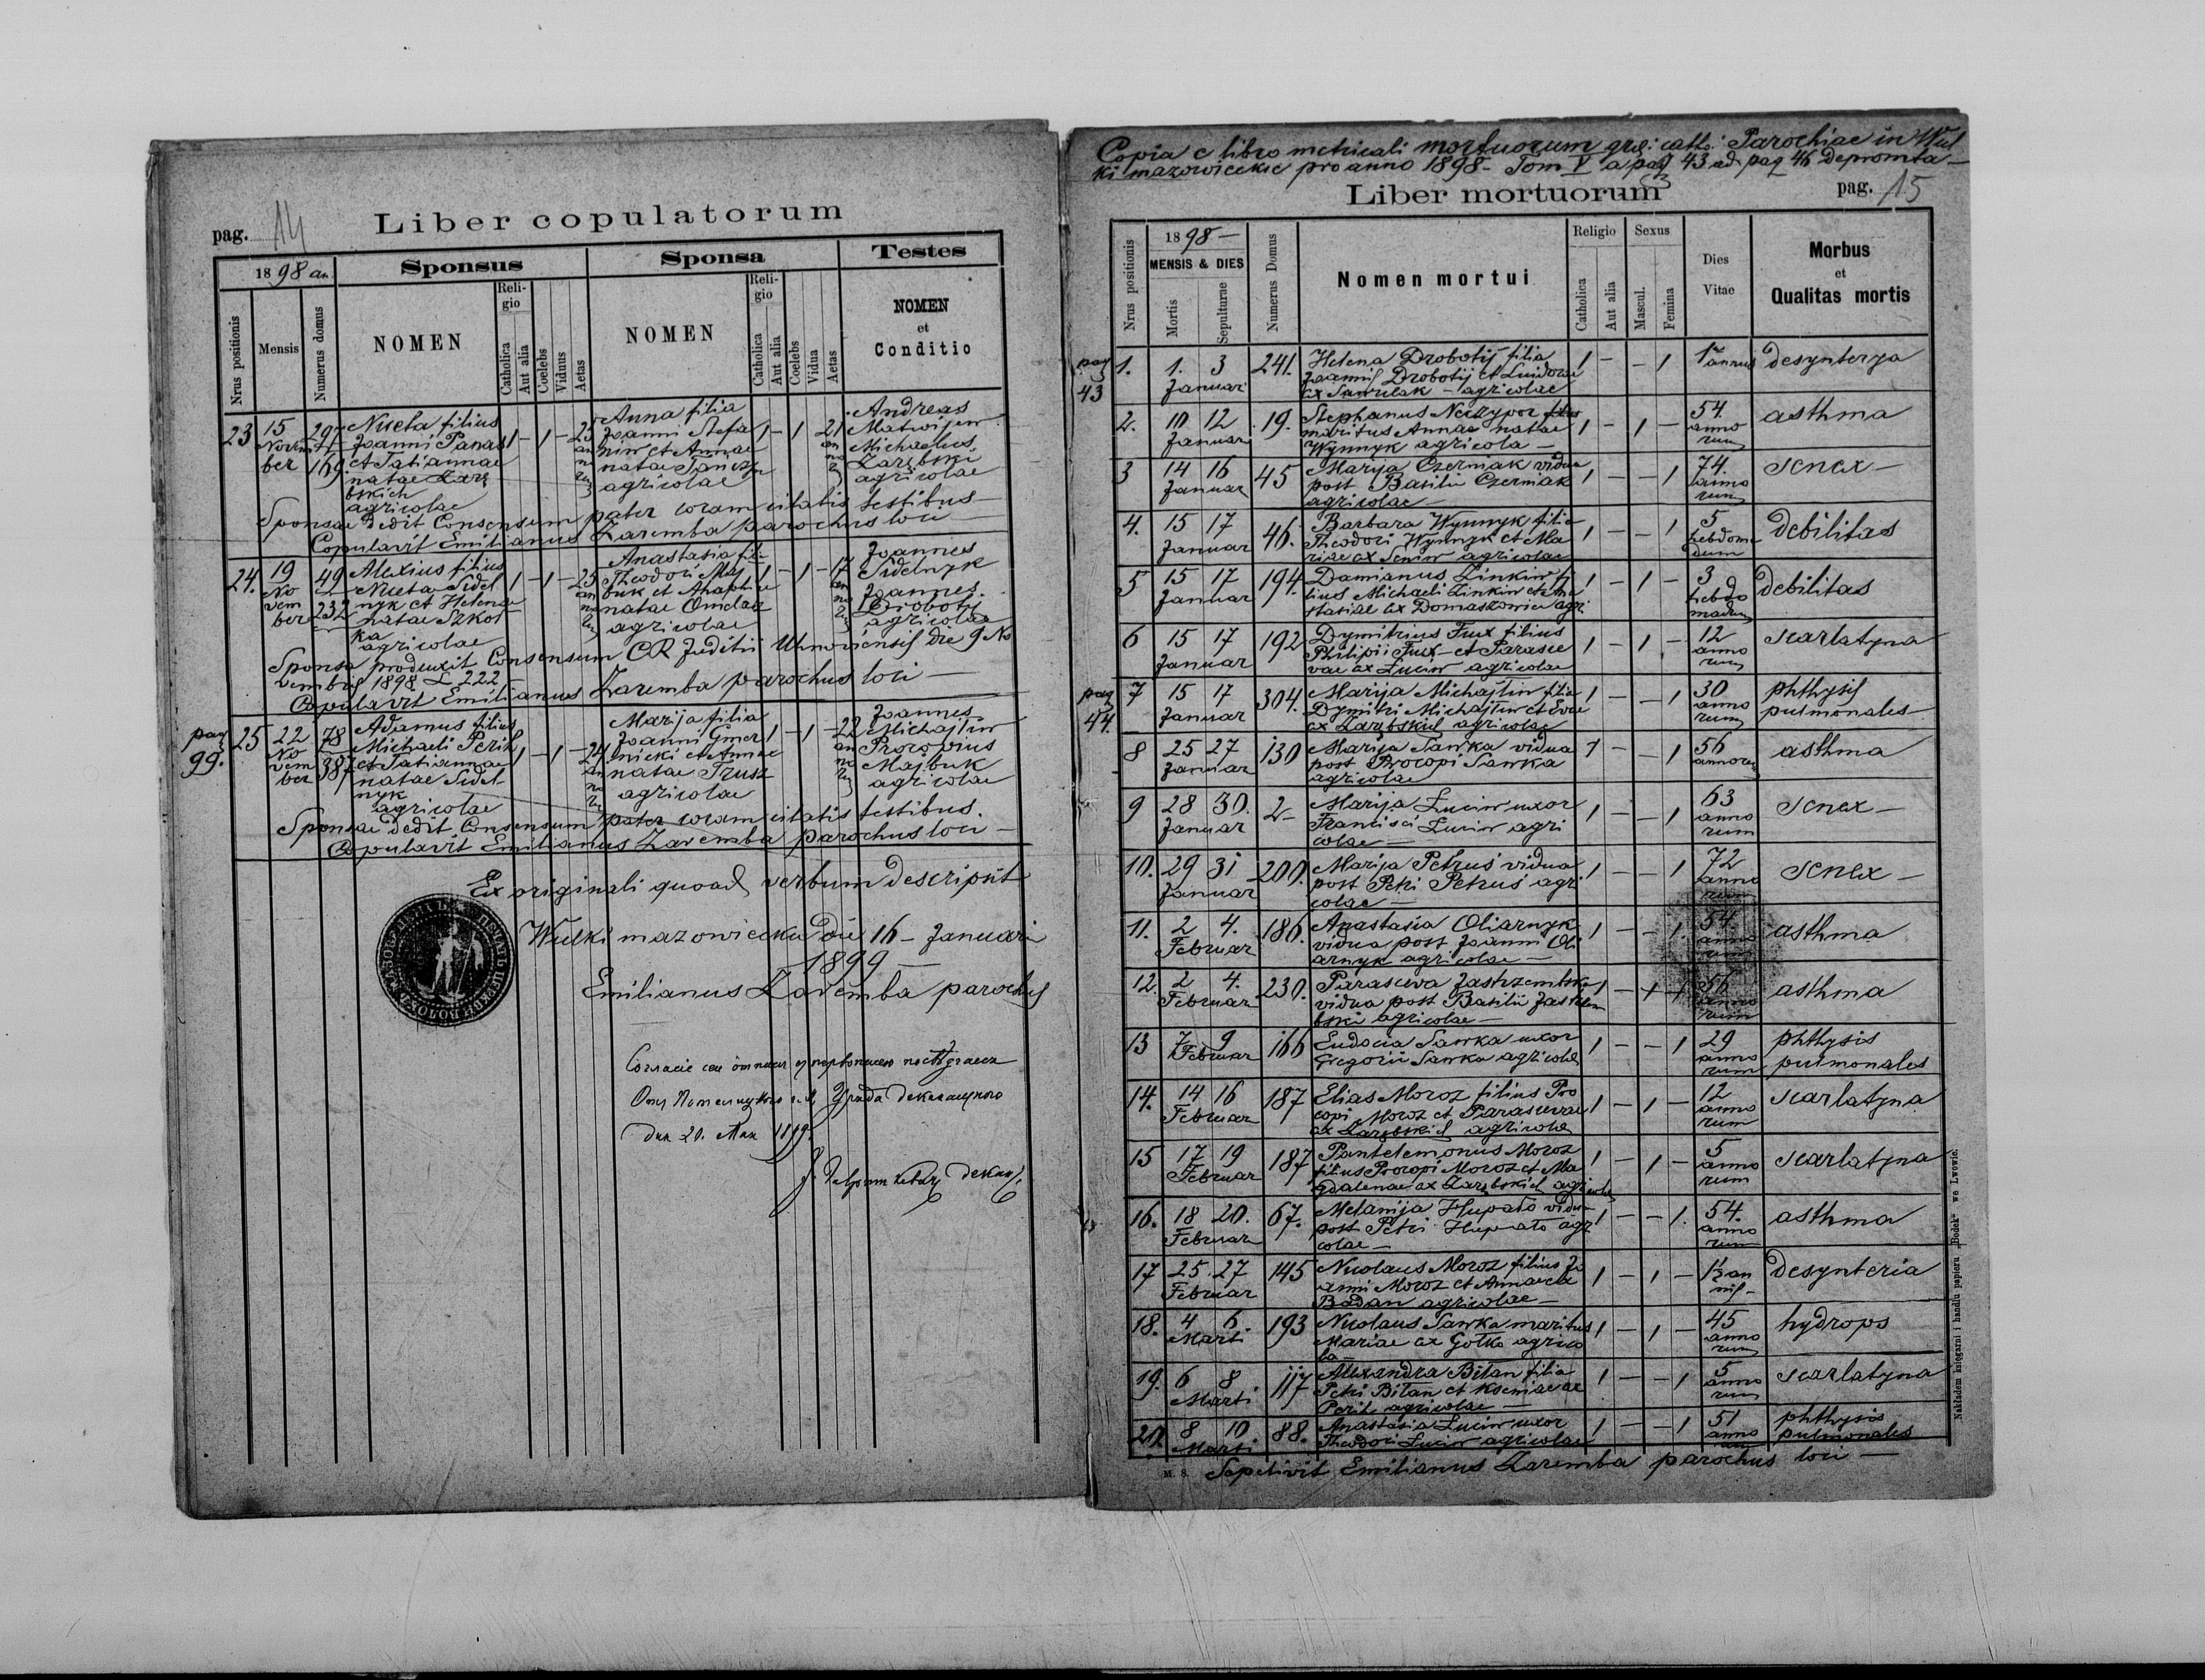 pag. 14
Liber copulatorum
1898 an.
Sponsus
Sponsa
Testes
Nrus positionis
Mensis
Numerus domus
NOMEN
Religio
Catholica
Aut alia
Coelebs
Viduus
Aetas
NOMEN
Religio
Catholica
Aut alia
Coelebs
Vidua
Aetas
NOMEN
et
Conditio
23 15 Novem ber 297 169
Niceta filius
Joanni Panas
et Tatiannae
natae Zarę
bskich
agricolae
1 - 1 - 25 an no
Anna filia
Joanni Stefa
niw et Annae
natae
agricolae
1 - 1 21 an no
Andreas
Matwijew
Michaelus
Zarębski
agricolae
Sponsae dedit Consensum pater coram citatis testibus
Copulavit Emilianus Zaremba parochus loci
24. 19 No vem ber 49 232
Alexius filius
Niceta Sidel
nyk et Helenae
natae Szkot
ka
agricolae
1 - 1 - 25 an no
Anastasia fil
Theodori Maj
buk et Ahaphiae
natae
agricolae
1 - 1 - 17 an no
Joannes
Sidelnyk
Joannes
Drobotij
agricolae
Sponsa produxit Consensum CR Juditii Uhnoviensis die 9 No
vembris 1898 L 222
Copulavit Emilianus Zaremba parochus loci
pag 99.
25 22 No vem ber 78 387
Adamus filius
Michaeli Perih
et Tatiannae
natae Sidel
nyk
agricolae
1 - 1 - 24 an no
Marija filia
Joanni Gmer
nicki et Annae
natae Trusz
agricolae
1 - 1 - 22 an no
Joannes
Michajliw
Procopius
Majbuk
agricolae
Sponsae dedit Consensum pater coram citatis testibus.
Copulavit Emilianus Zaremba parochus loci
Ex originali quoad verbum descripsit
Wulki mazowiecku die 16 - Januari
1899
Emilianus Zaremba parochus
Copia e libro metricali mortuorum gr: cath: Parochiae in Wul
ki mazowieckie pro anno 1898 - Tom V a pag 43 ad pag 46 depromta
Liber mortuorum
pag. 15
Nrus positionis
1898
MENSIS & DIES
Mortis
Sepulturae
Numerus Domus
Nomen mortui
Religio
Catholica
Aut alia
Sexus
Mascul.
Femina
Dies
Vitae
Morbus
et
Qualitas mortis
pag 43
1. 1. 3 Januar 241.
Helena Drobotij filia
Joannis Drobotij et
ex Sawulak - agricolae
1 - - 1 1 annus desynterya
2. 10 12 Januar 19.
Stephanus
maritus Annae natae
Wynnyk agricola
1 - 1 - 54. anno rum asthma
3 14 16 Januar 45
Marija Czerniak vidua
post Basilii Czerniak
agricolae
1 - - 1 74. anno rum senex
4. 15 17 Januar 46.
Barbara Wynnyk filia
Theodori Wynnyk et Ma
riae ex Seniw agricolae
1 - - 1 5 hebdoma dum debilitas
5 15 17 Januar 194.
Damianus Zinkiw fi
lius Michaeli Zinkiw et Ana
stasiae ex agri
1 - 1 - 3 hebdo madum debilitas
6 15 17 Januar 192
Dymitrius Fux filius
Philipii Fux et Parasce
vae ex Luciw agricolae
1 - 1 - 12 anno rum scarlatyna
pag 44.
7 15 17 Januar 304.
Marija Michajliw filia
Dymitri Michajliw et Evae
ex Zarębskich agricolae
1 - - 1 30 anno rum phthysis pulmonales
8 25 27 Januar 130
Marija Sawka vidua
post Procopi Sawka
agricolae
1 - - 1 56 annorum asthma
9 28 30. Januar 2
Marija Luciw uxor
Francisci Luciw agri
colae
1 - - 1 63 anno rum senex
10. 29 31 Januar 200.
Marija Petrus vidua
post Petri Petrus agri
colae
1 - - 1 72 anno rum senex
11. 2 4. Februar 186.
Anastasia Oliarnyk
vidua post Joanni Oli
arnyk agricolae
1 - - 1. 54. anno rum asthma
12. 2 4. Februar 230.
Parasceva Jastrzembska
vidua post Basilii Jastrzem
bski agricolae
1 - - 1 56 anno rum asthma
13 7 9 Februar 166
Eudocia Sawka uxor
Gregorii Sawka agricolae
1 - - 1 29 anno rum phthysis pulmonales
14. 14 16 Februar 187
Elias Moroz filius Pro
copi Moroz et Parascevae
ex Zarębskich agricolae
1 - 1 - 12 anno rum scarlatyna
15 17 19 Februar 187
Pantelemonus Moroz
filius Procopi Moroz et Ma
gdalenae ex Zarębskich agricolae
1 - 1 - 5 anno rum scarlatyna
16. 18 20. Februar 67.
Melanija Hupało vidua
post Petri Hupało agri
colae
1 - - 1. 54. anno rum asthma
17 25. 27 Februar 145
Nicolaus Moroz filius Jo
anni Moroz et Annae ex
Bodan agricolae
1 - 1 - 1½ an nis desynteria
18. 4 6. Marti 193
Nicolaus Sawka maritus
Mariae ex Gotko agrico
la
1 - 1 - 45 anno rum hydrops
19. 6 8 Marti 117
Alexandra Bitan filia
Petri Bitan et Kseniae ex
Perih agricolae
1 - - 1 5 anno rum scarlatyna
20. 8 10. Marti 88.
Anastasia Luciw uxor
Theodori Luciw agricolae
1 - - 1 51 anno rum phthysis pulmonales
M. S. Sepelivit Emilianus Zaremba parochus loci
Nakładem księgarni i handlu papieru „Bodek“ we Lwowie.